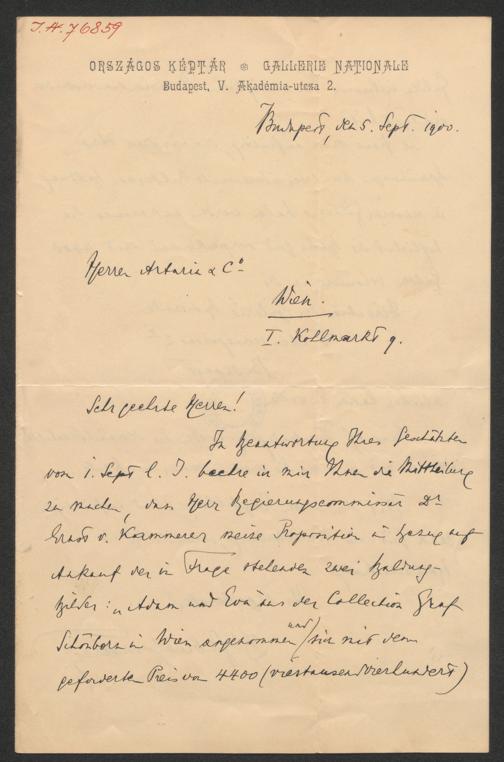 I.A. 76859
ORSZÁGOS KÉPTÁR ⊛ GALLERIE NATIONALE
Budapest, V. Akadémia-utcza 2.
Budapest, den 5. Sept. 1900.
Herren Artaria & Co
Wien.
I. Kohlmarkt 9.
Sehr geehrte Herren!
In Beantwortung Ihres Geschätzten
vom 1. Sept l. J. beehre ich mir Ihnen die Mittheilung
zu machen, dass Herr Regierungscommissär Dr
Ernst v. Kammerer meine Proposition in bezug auf
Ankauf der in Frage stehenden zwei Baldung-
bilder: „Adam und Eva aus der Collection Graf
Schönborn in Wien angenommen und sich mit dem
geforderten Preis von 4400 (viertausendvierhundert)